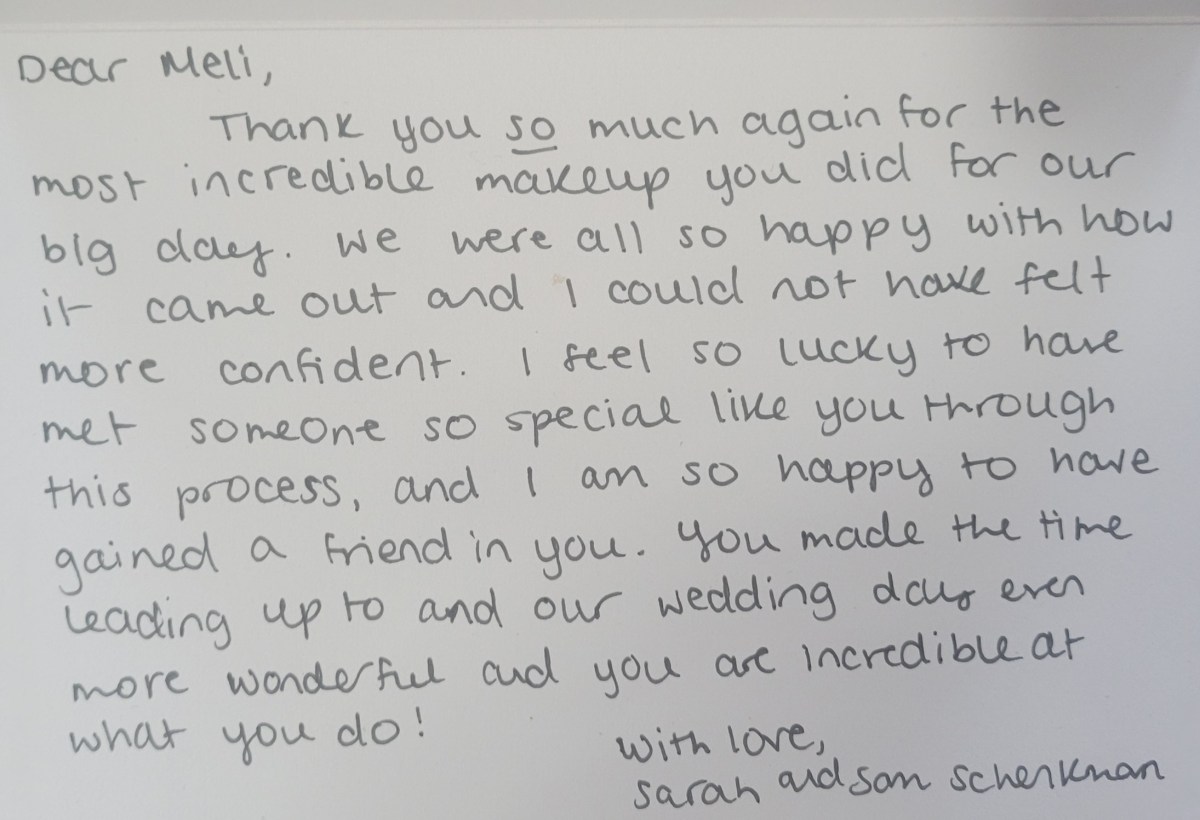 Dear Meli,
Thank you so much again for the
most incredible makeup you did for our
big day. We were all so happy with how
it came out and I could not have felt
more confident. I feel so lucky to have
met someone so special like you through
this process, and I am so happy to have
gained a friend in you. You made the time
leading up to and our wedding day even
more wonderful and you are incredible at
what you do!
With love,
Sarah and Sam Schenkman